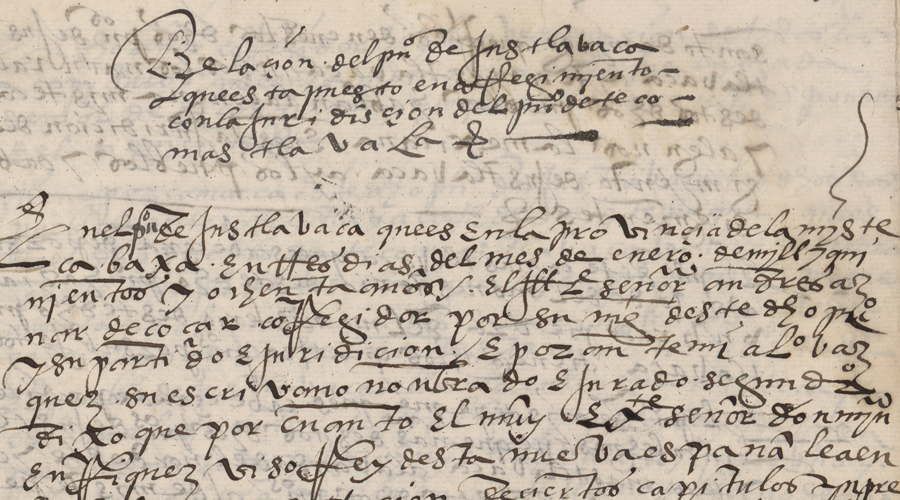 Relaçion del pu° de Justlavaca
ques ta puesto en coRegimiento
con la Juridisçion del pu° de teco
mastlavaca
En el pu° de Justlavaca ques En la provinçia de la myste
ca baxa. En tres dias del mes de enero. de mill y qui
nientos y ochenta años. El Ille señor andres az
nar de coçar coRegidor por su mg deste dho pu°
y su partido E Juridicion. E por ante mi al° vaz
quez su escrivano nonbrado E Jurado segun d
dixo que por cuanto El muy Ex te señor don myn
EnRiquez visoRey desta nueva españa le a en
de çiertos capitulos ynpre